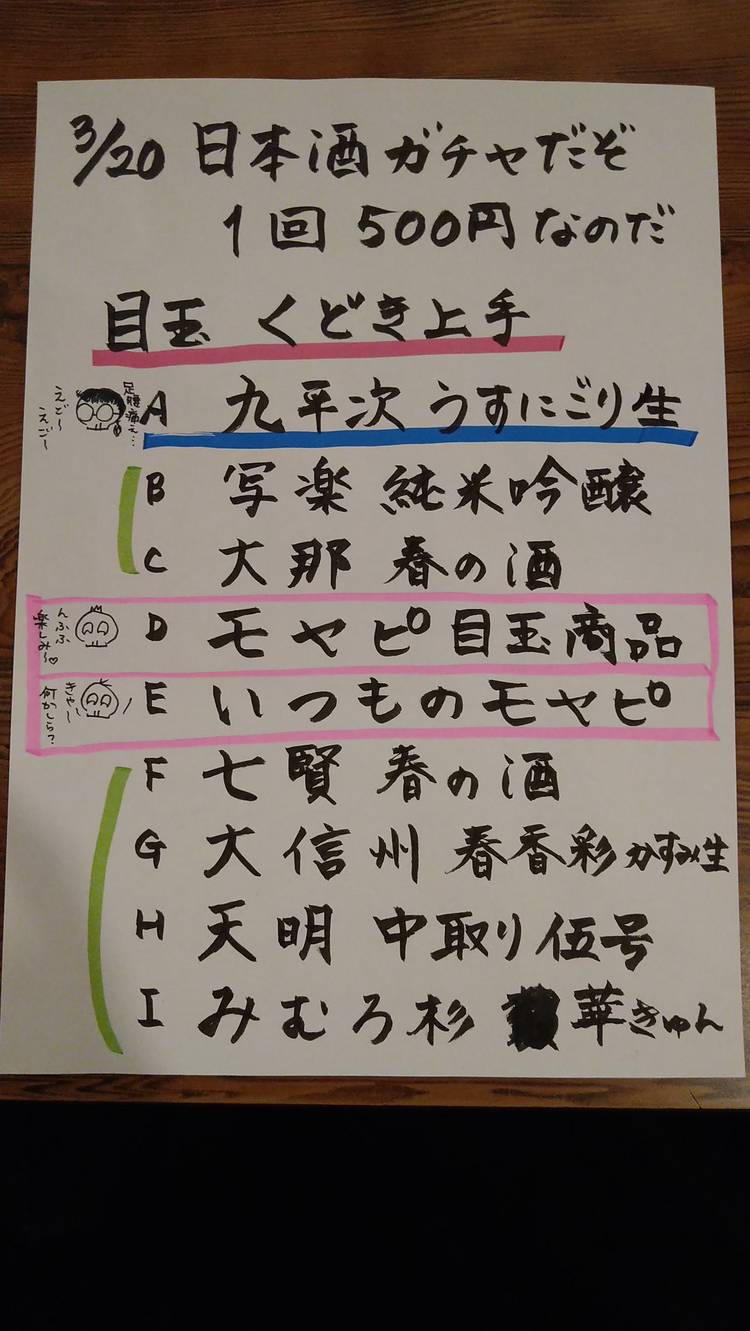 3/20 日本酒ガチャだぞ
1回 500円なのだ
目玉 くどき上手
足腰痛え…
えご〜
えご〜
A 九平次 うすにごり生
B 写楽 純米吟醸
C 大那 春の酒
んふふ
楽しみ〜♡
D モヤピ目玉商品
きゃー
何かしら?
E いつものモヤピ
F 七賢 春の酒
G 大信州 春香彩 かすみ生
H 天明 中取り伍号
I みむろ杉 華きゅん